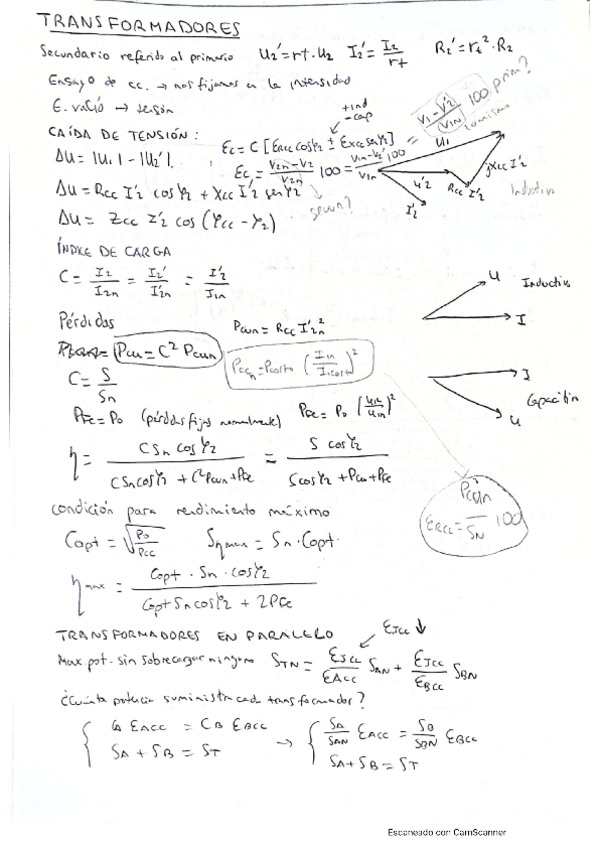 TRANSFORMADORES
Secundario referido al primario U2' = rt · U2 I2' = I2/rt R2' = rt² · R2
Ensayo de cc. → nos fijamos en la intensidad
E. vacío → tensión
+ind
-cap
CAÍDA DE TENSIÓN: Ec = C [ERcc cosφ2 ± EXcc senφ2] V1-V2'/V1N 100 prim?
lo mismo
ΔU = |U1| - |U2'| Ec = V2n-V2/V2n 100 = V1n-V2'/V1n 100
U1
U2'
Rcc I2'
jXcc I2'
I2'
Inductivo
ΔU = Rcc I2' cosφ2 + Xcc I2' senφ2
ΔU = Zcc I2' cos (φcc - φ2)
secun?
ÍNDICE DE CARGA
C = I2/I2n = I2'/I2n' = I2'/I1n
U Inductivo
I
Pérdidas Pcun = Rcc I2n'²
Pcu = C² Pcun Pccn = Pcorto (I1n/I1corto)²
C = S/Sn
I
Capacitivo
U
PFe = P0 (pérdidas fijas normalmente) PFe = P0 (U1/U1n)²
η = CSn cosφ2 / CSn cosφ2 + C²Pcun + PFe = S cosφ2 / S cosφ2 + Pcu + PFe
ERcc = Pccn/SN 100
Condición para rendimiento máximo
Copt = √P0/Pcc Sηmax = Sn · Copt
ηmax = Copt · Sn · cosφ2 / Copt Sn cosφ2 + 2PFe
TRANSFORMADORES EN PARALELO EJcc ↓
Max. pot. sin sobrecargar ninguno STN = EJcc/EAcc SAN + EJcc/EBcc SBN
¿Cuánta potencia suministra cada transformador?
CA EAcc = CB EBcc → SA/SAN EAcc = SB/SBN EBcc
SA + SB = ST SA + SB = ST
Escaneado con CamScanner